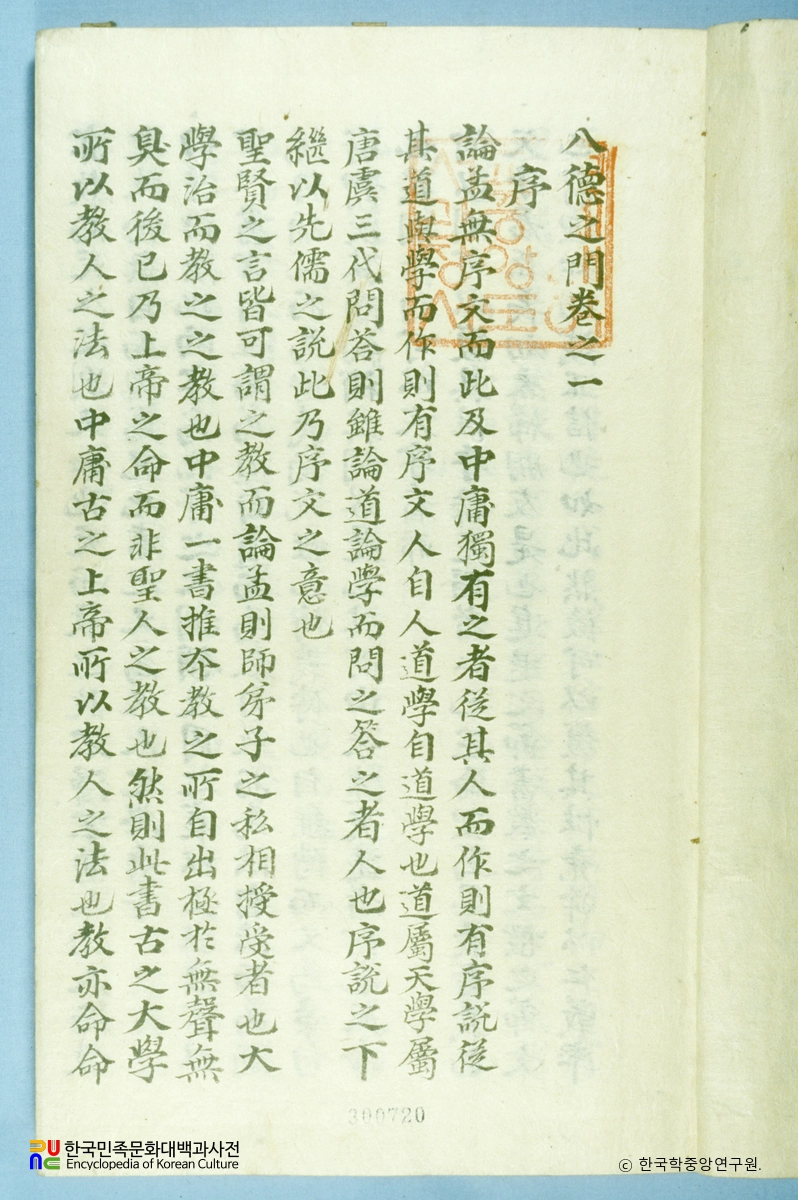 八德之門卷之一
序
論孟無序文而此及中庸獨有之者從其人而作則有序說從
其道與學而作則有序文人自人道學自道學也道屬天學屬
唐虞三代問答則雖論道論學而問之答之者人也序說之下
繼以先儒之說此乃序文之意也
聖賢之言皆可謂之教而論孟則師弟子之私相授受者也大
學治而教之之教也中庸一書推本教之所自出極於無聲無
臭而後已乃上帝之命而非聖人之教也然則此書古之大學
所以教人之法也中庸古之上帝所以教人之法也教亦命命
300720
한국민족문화대백과사전
Encyclopedia of Korean Culture
ⓒ 한국학중앙연구원.